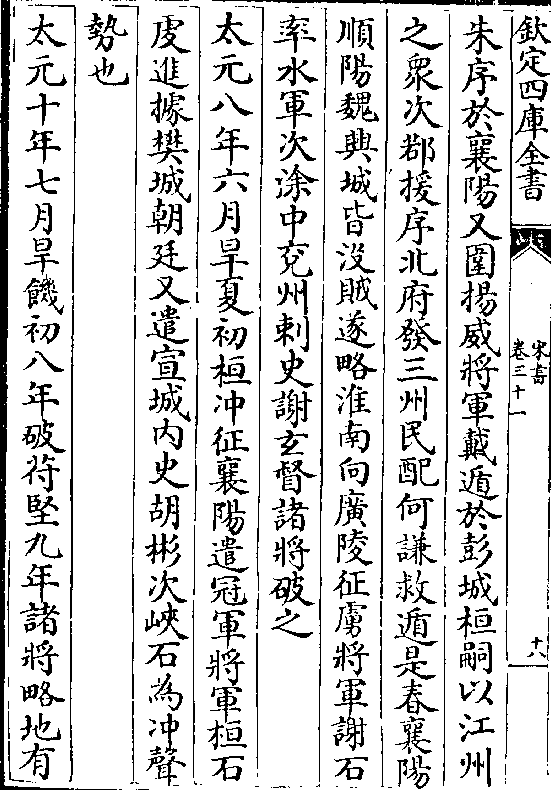 欽定四庫全書
宋書
卷三十一
十八
朱序於襄陽又圍揚威將軍戴遁於彭城桓嗣以江州
之衆次都援序北府發三州民配何謙救遁是春襄陽
順陽魏興城皆没賊遂略淮南向廣陵征虜將軍謝石
率水軍次涂中兖州刺史謝玄督諸將破之
太元八年六月旱夏初桓冲征襄陽遣冠軍將軍桓石
虔進據樊城朝廷又遣宣城内史胡彬次峽石為冲聲
勢也
太元十年七月旱饑初八年破苻堅九年諸將略地有